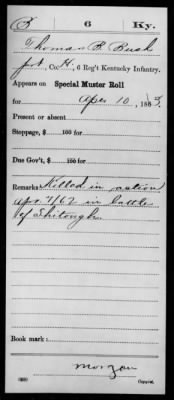 B 6 Ky.
Thomas B. Bush
pvt, Co. H, 6 Reg't Kentucky Infantry.
Appears on Special Muster Roll
for Apr 10, 1863.
Present or absent
Stoppage, $ 100 for
Due Gov't, $ 100 for
Remarks: Killed in action
Apr. 7/62 in battle
of Shilough.
Book mark:
Morgan
Copyist.